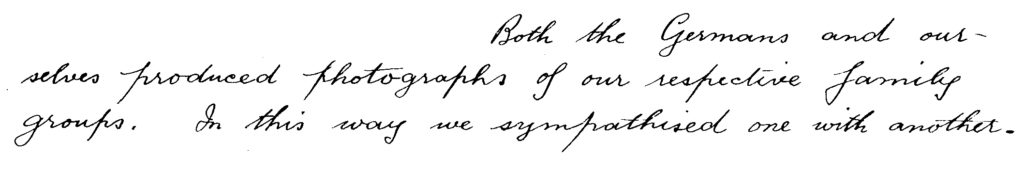 Both the Germans and our-
selves produced photographs of our respective family
groups. In this way we sympathised one with another.